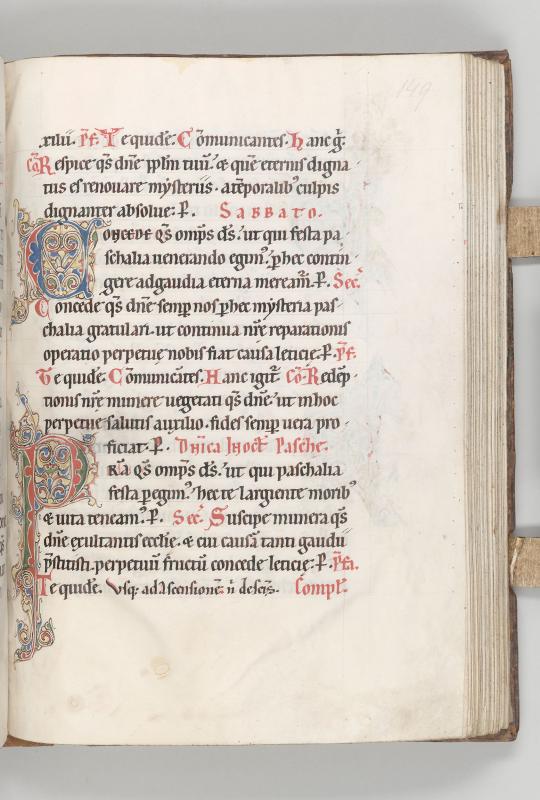 149
xiliū. P̄f. Te quidē. Cōmunicantes. Hanc g̊.
Cō Respice q̄s dñe pp̄lm tuū. & quē eternis digna
tus es renouare mẏsteriis. a tēporalib; culpis
dignanter absolue. P̄. SABBATO.
Concede q̄s omp̄s ds̄. ut qui festa pa
schalia uenerando egim᷒. p̱ hec contin
gere ad gaudia eterna meream᷑. P̄. Secr̄.
Concede q̄s dñe semp̱ nos p̱ hec mẏsteria pas
chalia gratulari. ut continua nr̄e reparationis
operatio perpetue nobis fiat causa leticie. P̄. P̄f.
Te quidē. Cōmunicātes. Hanc igit᷑. Cō. Redēp
tionis nr̄ę munere uegetati q̄s dñe. ut in hoc
perpetue salutis auxilio. fides semp̱ uera pro
ficiat. P̄. Dn̄ica in oct̄ Pasche.
PRa q̄s omp̄s ds̄. ut qui paschalia
festa p̱egim᷒. hec te largiente morib;
& uita teneam᷒. P̄. Secr̄. Suscipe munera q̄s
dñe exultantis ecclīe. & cui causā tanti gaudii
p̄stitisti. perpetuū fructū concede leticie. P̄. P̄fa.
Te quidē. Usq; ad Ascensionē. Compl̄.